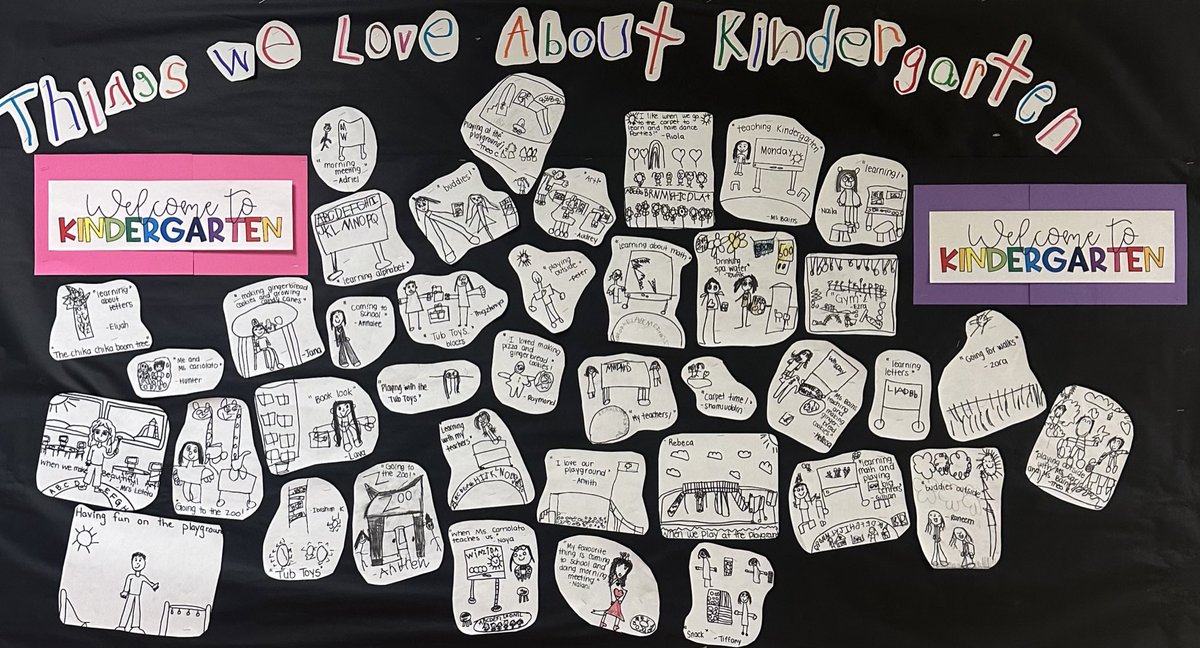 Things we Love About Kindergarten
Welcome to
KINDERGARTEN
Welcome to
KINDERGARTEN
"morning
meeting"
-Adriel
Playing at the
playground
"I like when we go
to the carpet to
learn and have dance
parties!"
"teaching Kindergarten"
Monday
-Ms Bains
"learning!"
Naila
"buddies!"
"Art"
-Audrey
ABCDEFGHIJ
KLMNOPQ
"learning alphabet"
"playing
outside"
-peter
"learning about math"
"Drinking
spa water"
"Gym"
-Ezra
"learning
about
letters
-Elijah
"The chika chika boom tree"
"making gingerbread
cookies and growing
candy canes"
-Juna
"Coming to
school"
-Annalee
"Tub Toys"
blocks
"Me and
Ms. Carriolato"
-Hunter
"Playing with the
Tub Toys"
"I loved making
pizza and
gingerbread
cookies!"
-Raymond
"My teachers!"
"carpet time!"
"Ms. Bains
teaching
and
making
ginger-
bread
cookies"
"learning
letters"
"Going for walks"
-Zara
"when we make
patterns"
"Going to the zoo!"
"Book look"
"Learning
with my
teachers"
"Going to
the zoo!"
"I love our
playground"
Rebeca
"when we play at the playground"
"learning
math and
playing
"buddies outside"
Raneem
"Having fun on the playground"
-Ibrahim K
"Tub Toys"
"When Ms. Carriolato
teaches us" Naya
"My favourite
thing is coming
to school and
doing morning
meeting"
"Snack" -Tiffany